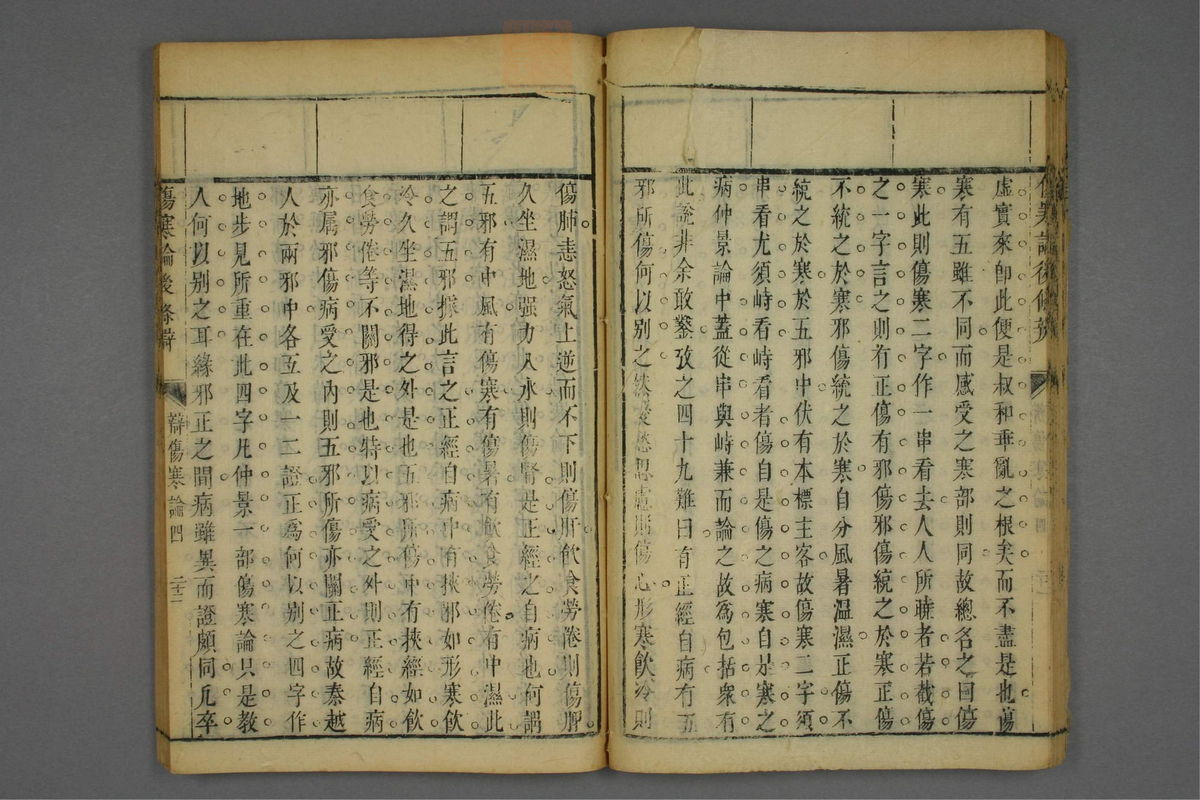 傷寒論後條辨
虛實來卽此便是叔和乖亂之根矣而不盡是也傷
寒有五雖不同而感受之寒部則同故總名之曰傷
寒此則傷寒二字作一串看去人人所曉者若截傷
之一字言之則有正傷有邪傷邪傷統之於寒正傷
不統之於寒邪傷統之於寒自分風暑溫濕正傷不
統之於寒於五邪中伏有本標主客故傷寒二字須
串看尤須峙看峙看者傷自是傷之病寒自是寒之
病仲景論中蓋從串與峙兼而論之故爲包括衆有
此說非余敢鑿攷之四十九難曰有正經自病有五
邪所傷何以别之然憂愁思慮則傷心形寒飲冷則
傷肺恚怒氣上逆而不下則傷肝飲食勞倦則傷脾
久坐濕地强力入水則傷腎是正經之自病也何謂
五邪有中風有傷寒有傷暑有飲食勞倦有中濕此
之謂五邪據此言之正經自病中有挾邪如形寒飲
冷久坐濕地得之外是也五邪所傷中有挾經如飲
食勞倦等不關邪是也特以病受之外則正經自病
亦屬邪傷病受之內則五邪所傷亦關正病故秦越
人於兩邪中各互及一二證正爲何以别之四字作
地步見所重在此四字凡仲景一部傷寒論只是教
人何以别之耳緣邪正之間病雖異而證頗同凡卒
傷寒論後條辨
辯傷寒論四
二十二